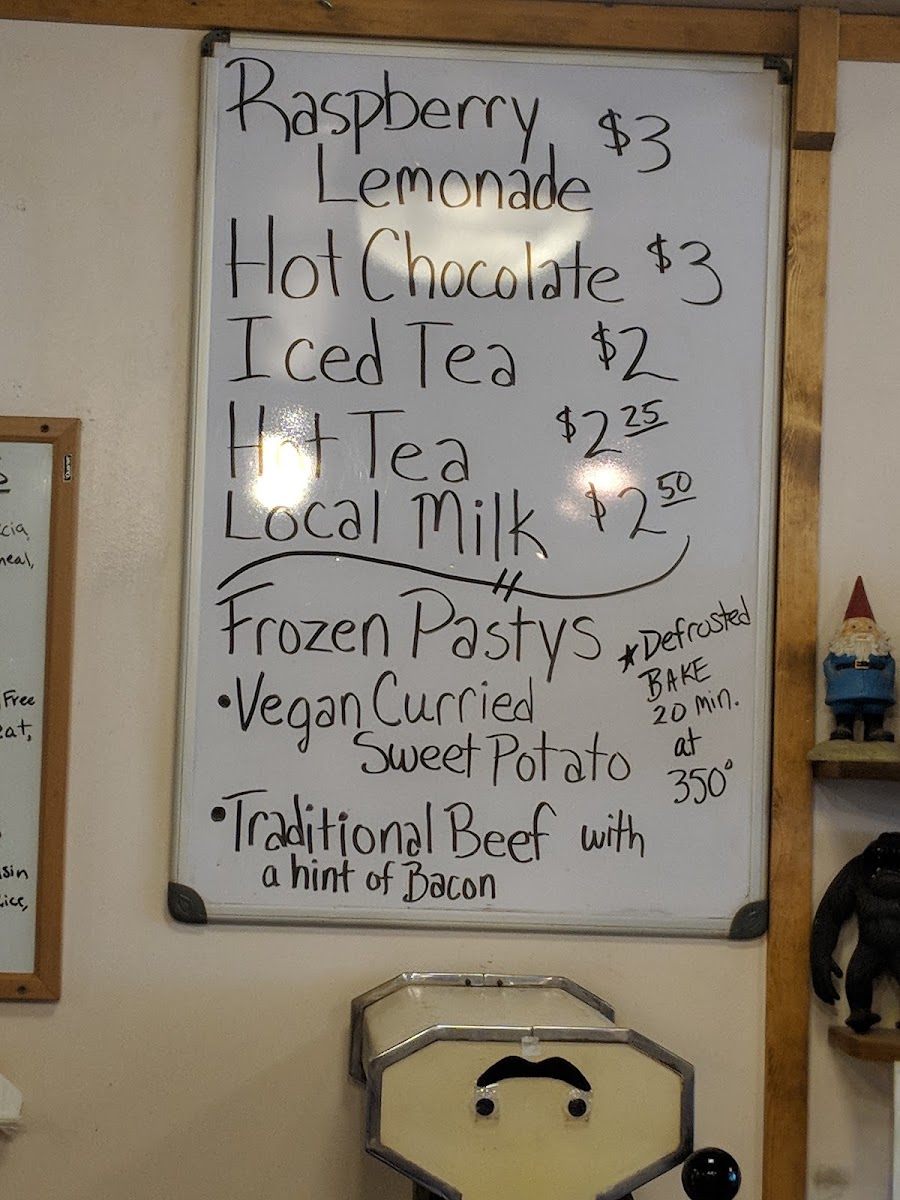 Raspberry $3
Lemonade
Hot Chocolate $3
Iced Tea $2
Hot Tea $2 25
Local Milk $2 50
Frozen Pastys
• Vegan Curried
Sweet Potato
• Traditional Beef with
a hint of Bacon
* Defrosted
BAKE
20 min.
at
350°
Free